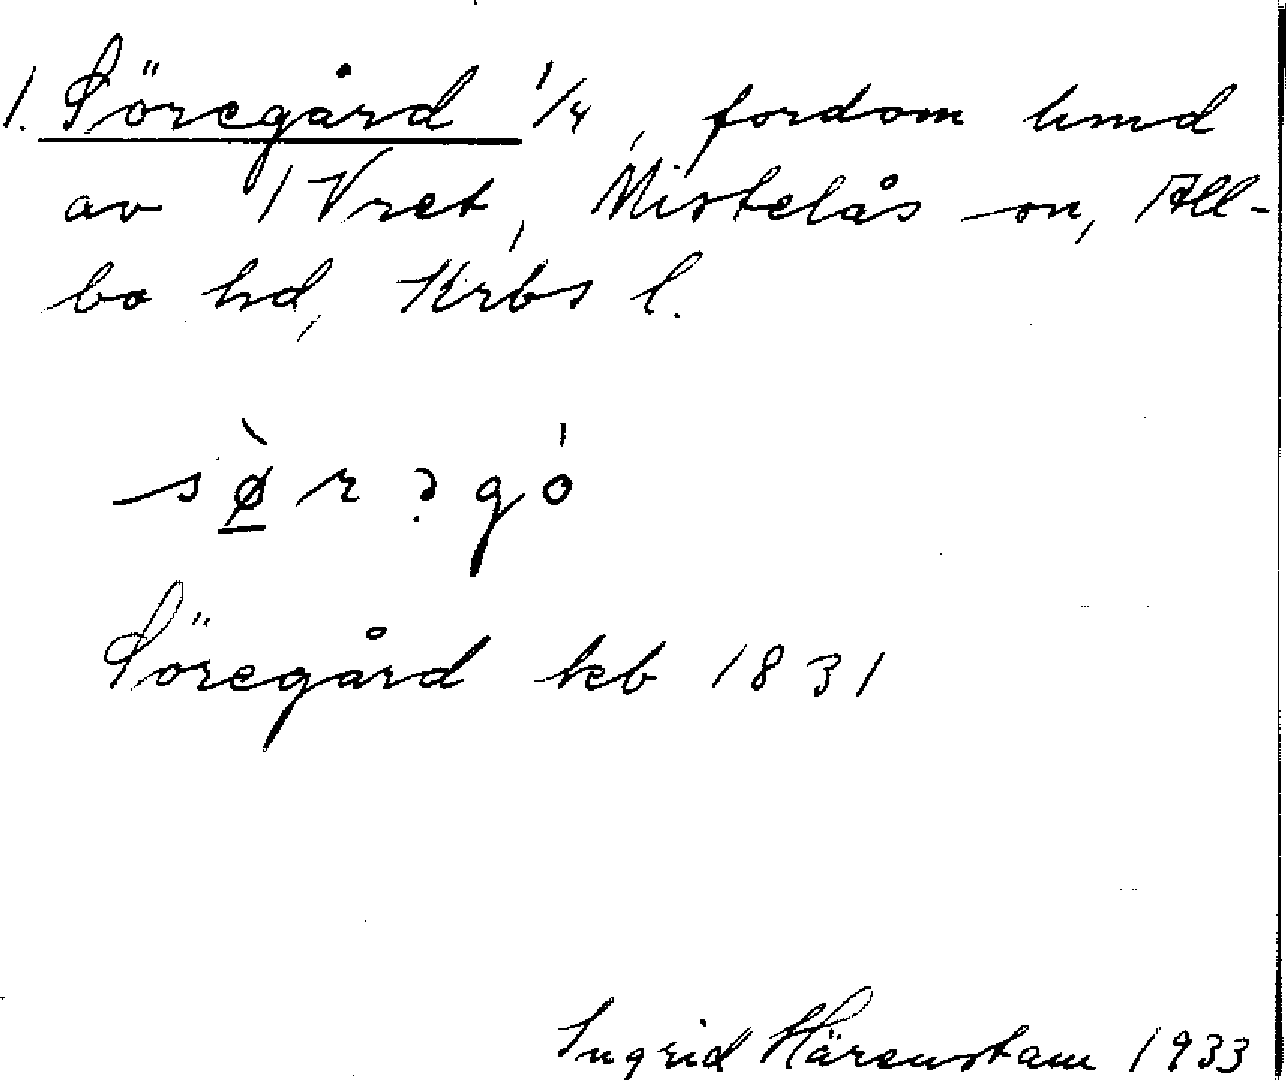 1. Söregård 1/4, fordom hmd
av 1 Vret, Mistelås sn, All-
bo hd, Krbs l.
sø̀rəgó
Söregård kb 1831
Ingrid Härenstam 1933